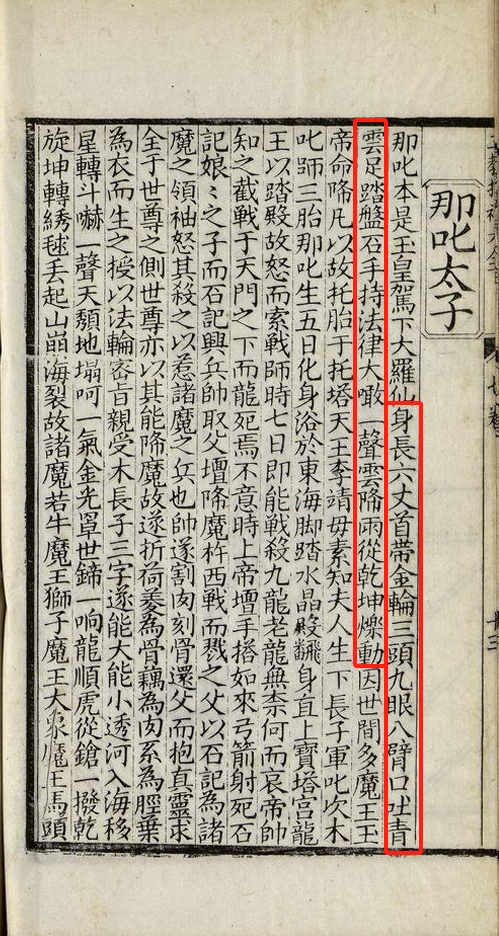 那叱太子
那叱本是玉皇駕下大羅仙身長六丈首帶金輪三頭九眼八臂口吐青
雲足踏盤石手持法律大噉一聲雲降雨從乾坤爍動因世間多魔王玉
帝命降凡以故托胎于托塔天王李靖母素知夫人生下長子軍叱次木
叱師三胎那叱生五日化身浴於東海脚踏水晶殿飜身直上寶塔宮龍
王以踏殿故怒而索戰師時七日即能戰殺九龍老龍無柰何而哀帝帥
知之截戰于天門之下而龍死焉不意時上帝壇手搭如來弓箭射死石
記娘〻之子而石記興兵帥取父壇降魔杵西戰而戮之父以石記為諸
魔之領袖怒其殺之以惹諸魔之兵也帥遂割肉刻骨還父而抱真靈求
全于世尊之側世尊亦以其能降魔故遂折荷菱為骨藕為肉系為脛葉
為衣而生之授以法輪密旨親受木長子三字遂能大能小透河入海移
星轉斗嚇一聲天頹地塌呵一氣金光罩世鍗一响龍順虎從鎗一撥乾
旋坤轉綉毬丟起山崩海裂故諸魔若牛魔王獅子魔王大象魔王馬頭